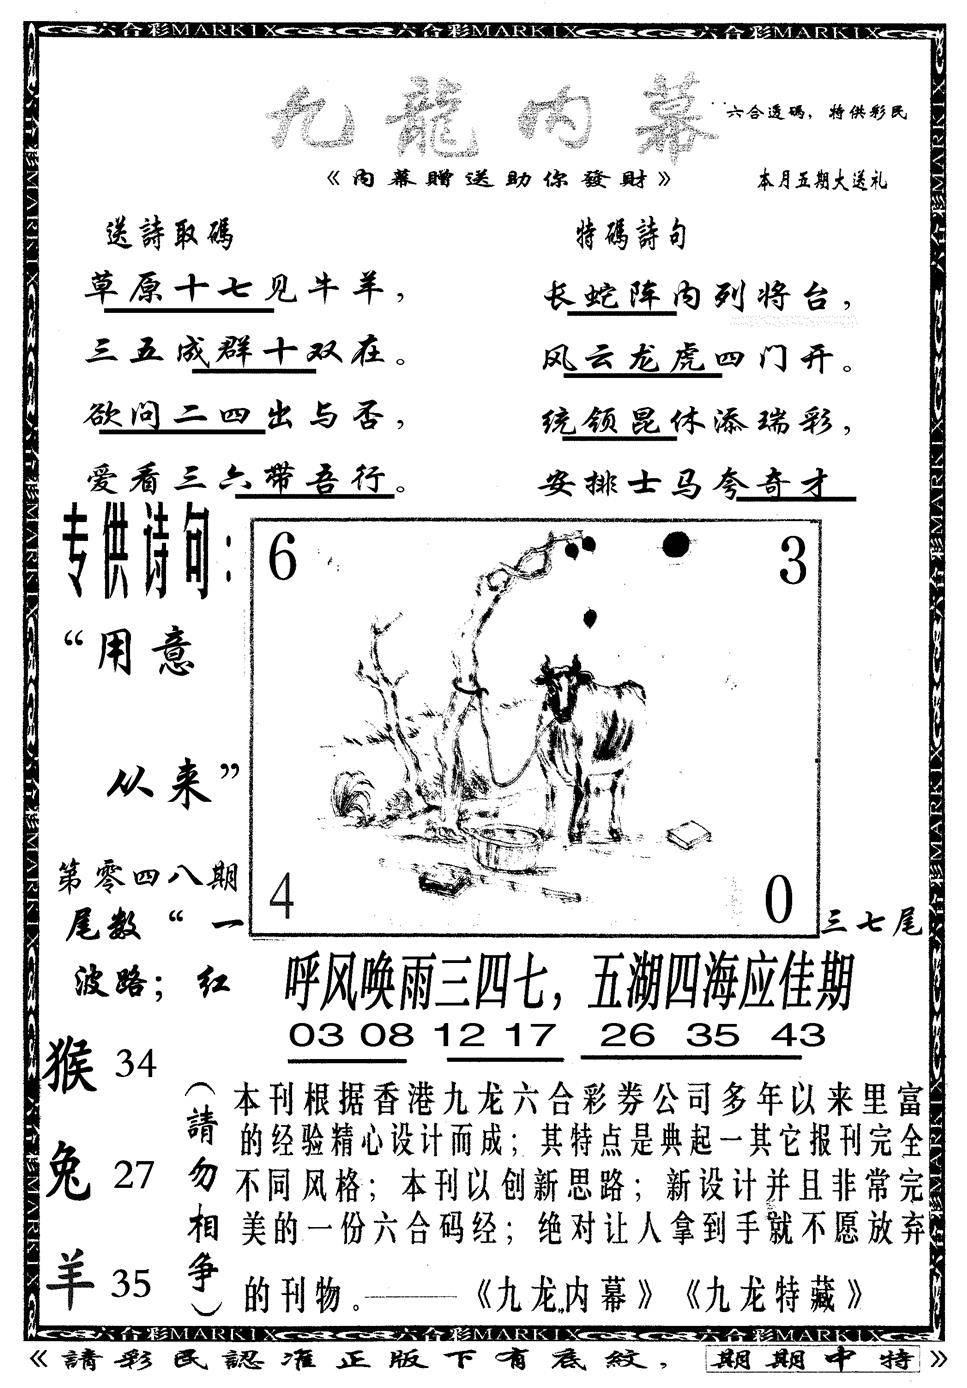 六合彩MARKIX 六合彩MARKIX 六合彩MARKIX
九龍内幕
六合透码，特供彩民
《内幕赠送助你發財》
本月五期大送礼
送詩取碼
草原十七见牛羊，
三五成群十双在。
欲问二四出与否，
爱看三六带吾行。
特碼詩句
长蛇阵内列将台，
风云龙虎四门开。
统领昆休添瑞彩，
安排士马夸奇才
专供诗句：
“用意
从来”
第零四八期
尾数“一
三七尾
波路；红
6
3
4
0
呼风唤雨三四七，五湖四海应佳期
03 08 12 17 26 35 43
猴 34
兔 27
羊 35
（請勿相争）
本刊根据香港九龙六合彩劵公司多年以来里富
的经验精心设计而成；其特点是典起一其它报刊完全
不同风格；本刊以创新思路；新设计并且非常完
美的一份六合码经；绝对让人拿到手就不愿放弃
的刊物。———《九龙内幕》《九龙特藏》
六合彩MARKIX 六合彩MARKIX 六合彩MARKIX
《請彩民認准正版下有底紋，期期中特》